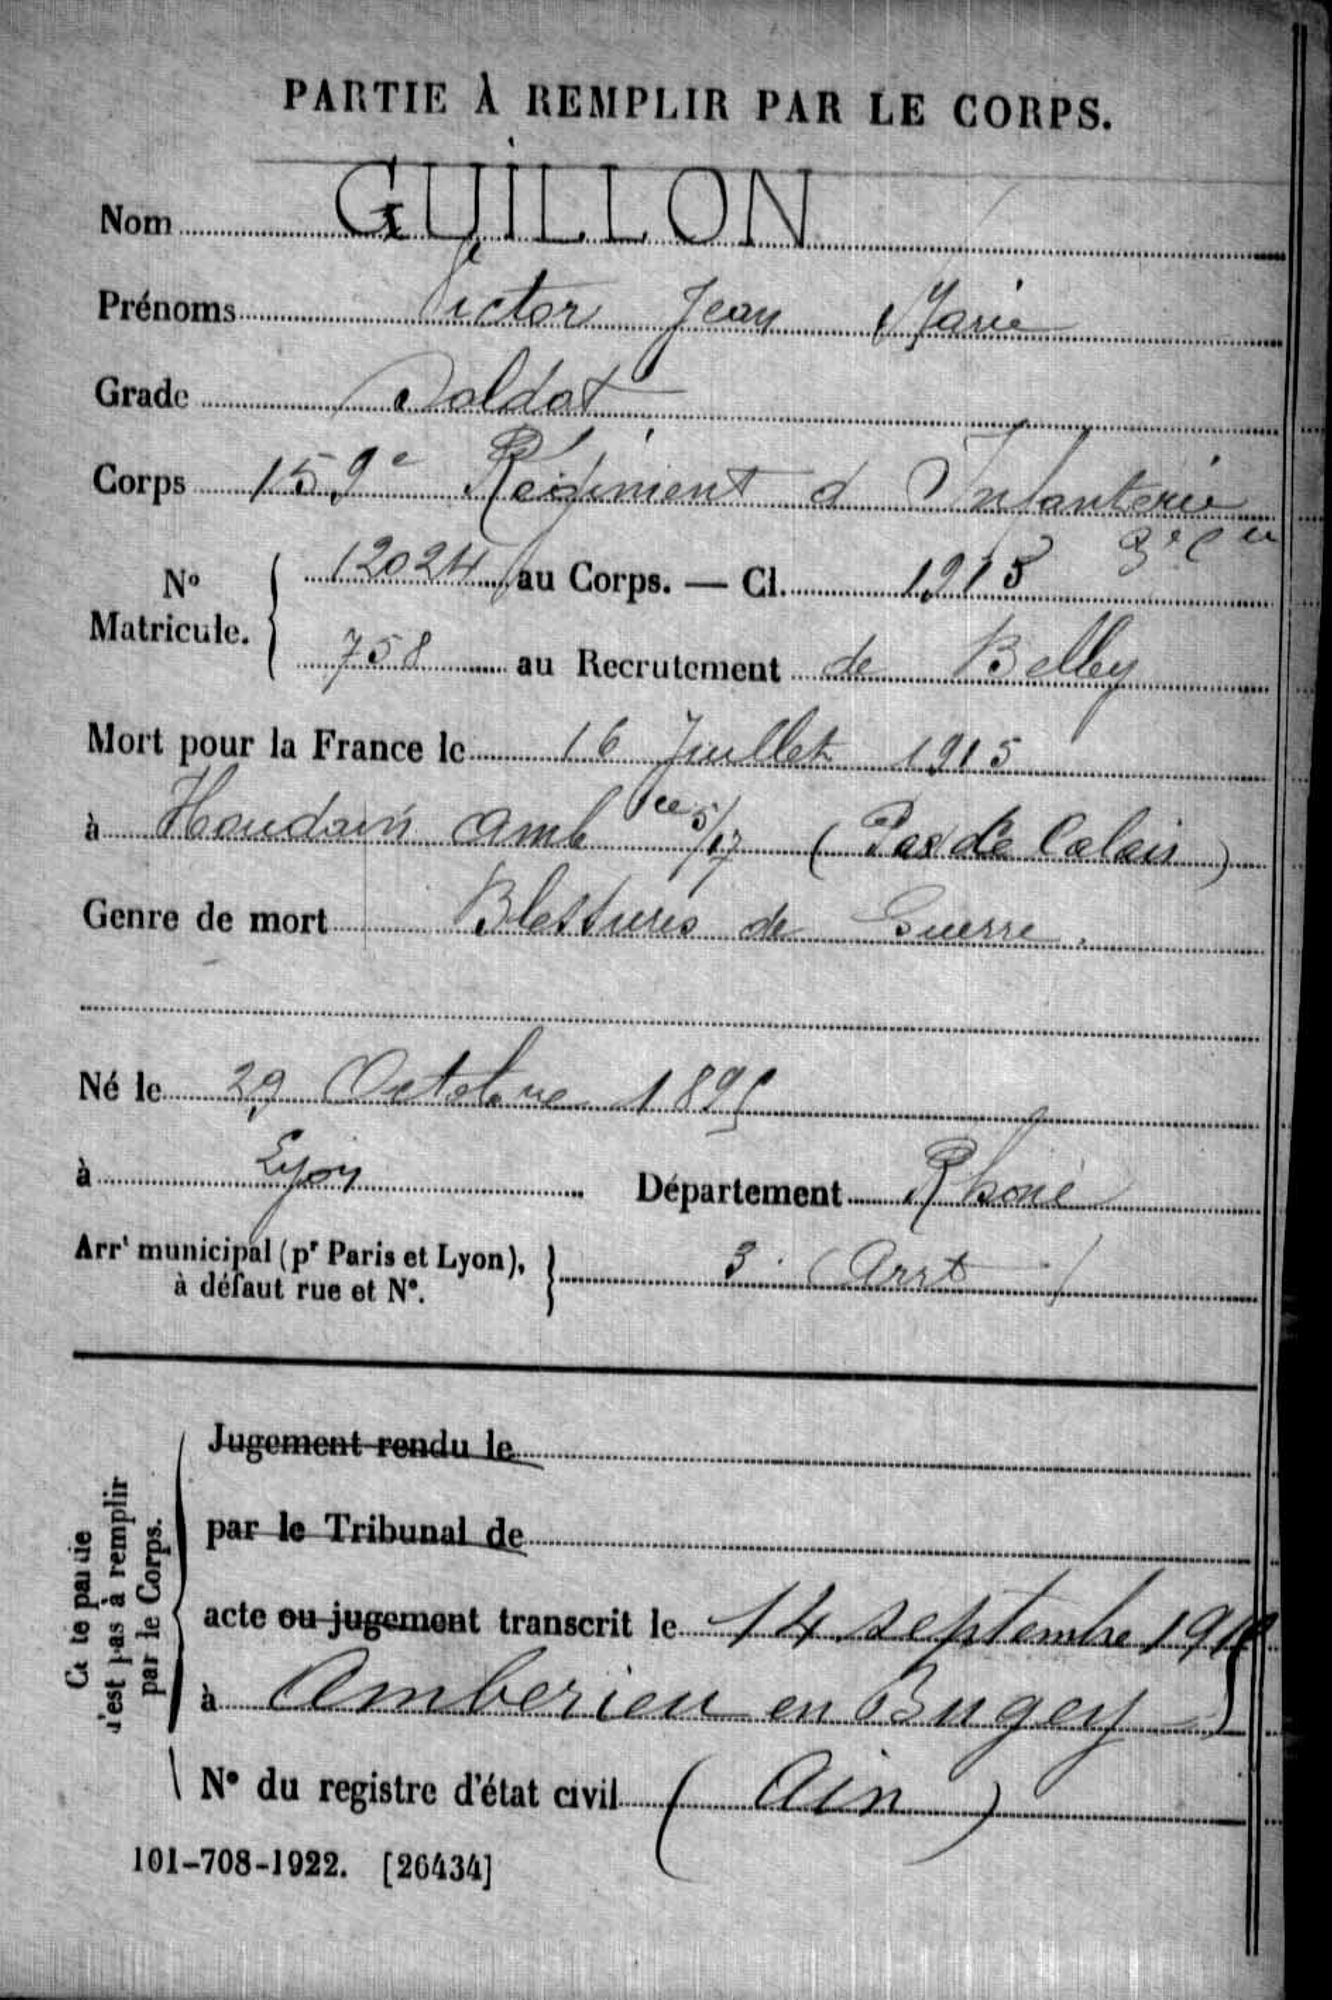 PARTIE À REMPLIR PAR LE CORPS.
Nom GUILLON
Prénoms Victor Jean Marie
Grade Soldat
Corps 159e Régiment d Infanterie
3e Cie
N° Matricule. { 12024 au Corps. — Cl. 1915
758 au Recrutement de Belley
Mort pour la France le 16 Juillet 1915
à Houdain Amb ce 5/17 (Pas de Calais)
Genre de mort Blessures de Guerre.
Né le 29 Octobre 1895
à Lyon Département Rhône
Arrt municipal (pr Paris et Lyon), à défaut rue et N°. } 3 (Arrt)
Cette partie n'est pas à remplir par le Corps.
Jugement rendu le
par le Tribunal de
acte ou jugement transcrit le 14 septembre
à Amberieu en Bugey
N° du registre d'état civil (Ain)
101-708-1922. [26434]